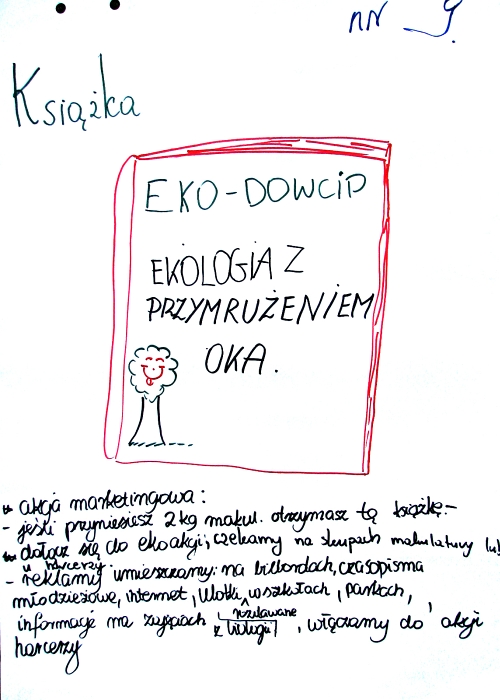 nr 9.
Książka
EKO-DOWCIP
EKOLOGIA Z
PRZYMRUŻENIEM
OKA.
akcja marketingowa:
- jeśli przyniesiesz 2 kg makul. otrzymasz tę książkę
- dołącz się do ekoakcji, czekamy na skupach makulatury lu!
u harcerzy
- reklamy umieszczamy: na billbordach, czasopisma
młodzieżowe, internet, ulotki w szkołach, parkach,
rozdawane
informacje na zajęciach z biologii, włączamy do akcji
harcerzy